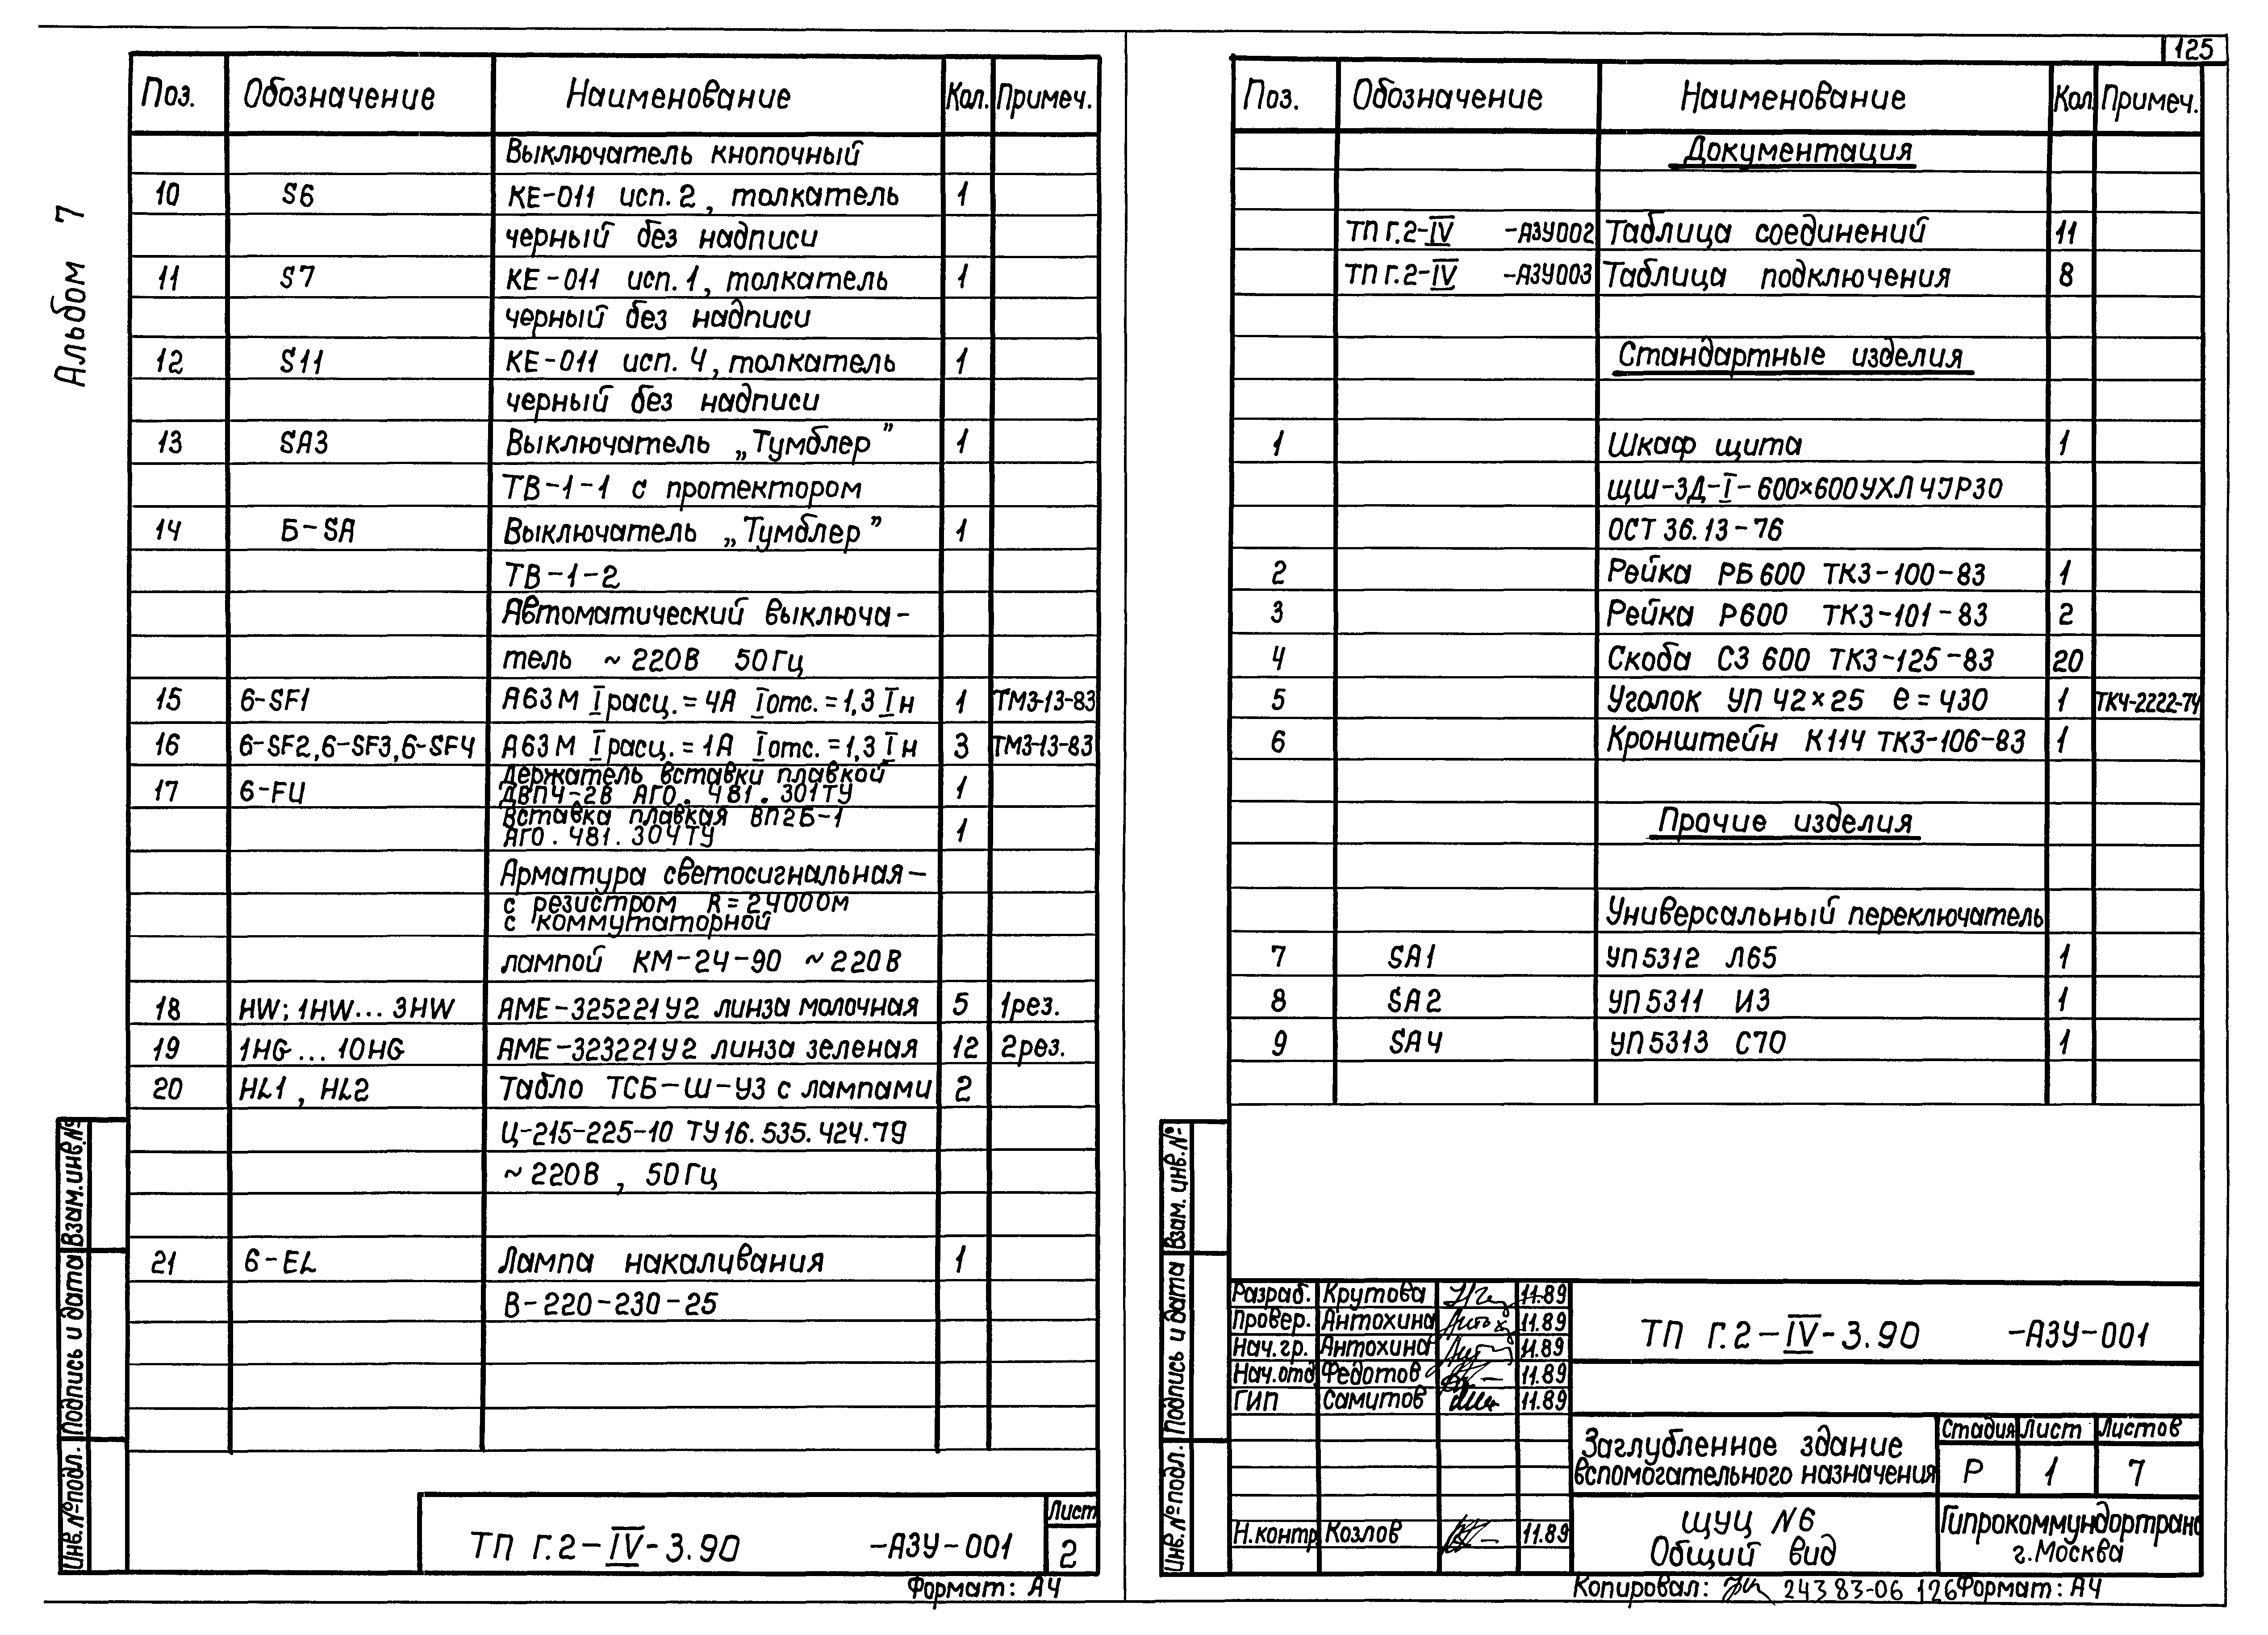 125
Альбом 7
Поз. Обозначение Наименование Кол. Примеч.
Выключатель кнопочный
10 S6 КЕ-011 исп. 2, толкатель 1
черный без надписи
11 S7 КЕ-011 исп. 1, толкатель 1
черный без надписи
12 S11 КЕ-011 исп. 4, толкатель 1
черный без надписи
13 SA3 Выключатель „Тумблер” 1
ТВ-1-1 с протектором
14 Б-SA Выключатель „Тумблер” 1
ТВ-1-2
Автоматический выключа-
тель ~220В 50Гц
15 6-SF1 А63М Iрасц.=4А Iотс.=1,3 Iн 1 ТМ3-13-83
16 6-SF2,6-SF3,6-SF4 А63М Iрасц.=1А Iотс.=1,3 Iн 3 ТМ3-13-83
держатель вставки плавкой
17 6-FU ДВП4-2В АГО.481.301ТУ 1
вставка плавкая ВП2Б-1
АГО.481.304ТУ 1
Арматура светосигнальная-
с резистром R=2400Ом
с коммутаторной
лампой КМ-24-90 ~220В
18 HW; 1HW... 3HW АМЕ-325221У2 линза молочная 5 1рез.
19 1HG ... 10HG АМЕ-323221У2 линза зеленая 12 2рез.
20 HL1, HL2 Табло ТСБ-Ш-У3 с лампами 2
Ц-215-225-10 ТУ16.535.424.79
~220В, 50Гц
21 6-EL Лампа накаливания 1
В-220-230-25
Взам.инв.№
Подпись и дата
Инв.№подл.
Лист
ТП Г.2-IV-3.90 -АЗУ-001 2
Формат: А4
Поз. Обозначение Наименование Кол. Примеч.
Документация
ТП Г.2-IV -АЗУ002 Таблица соединений 11
ТП Г.2-IV -АЗУ003 Таблица подключения 8
Стандартные изделия
1 Шкаф щита 1
ЩШ-ЗД-I-600×600УХЛ4JР30
ОСТ 36.13-76
2 Рейка РБ600 ТК3-100-83 1
3 Рейка Р600 ТК3-101-83 2
4 Скоба С3 600 ТК3-125-83 20
5 Уголок УП 42×25 е=430 1 ТК4-2222-74
6 Кронштейн К114 ТК3-106-83 1
Прочие изделия
Универсальный переключатель
7 SA1 УП5312 Л65 1
8 SA2 УП5311 И3 1
9 SA4 УП5313 С70 1
Взам. инв.№
Подпись и дата
Инв.№подл.
Разраб. Крутова 11.89
Провер. Антохина 11.89
Нач.гр. Антохина 11.89
Нач.отд. Федотов 11.89
ГИП Самитов 11.89
Н.контр. Козлов 11.89
ТП Г.2-IV-3.90 -АЗУ-001
Заглубленное здание
вспомогательного назначения
Стадия Лист Листов
Р 1 7
ЩУЦ №6
Общий вид
Гипрокоммундортранс
г.Москва
Копировал: 24383-06 126 Формат: А4